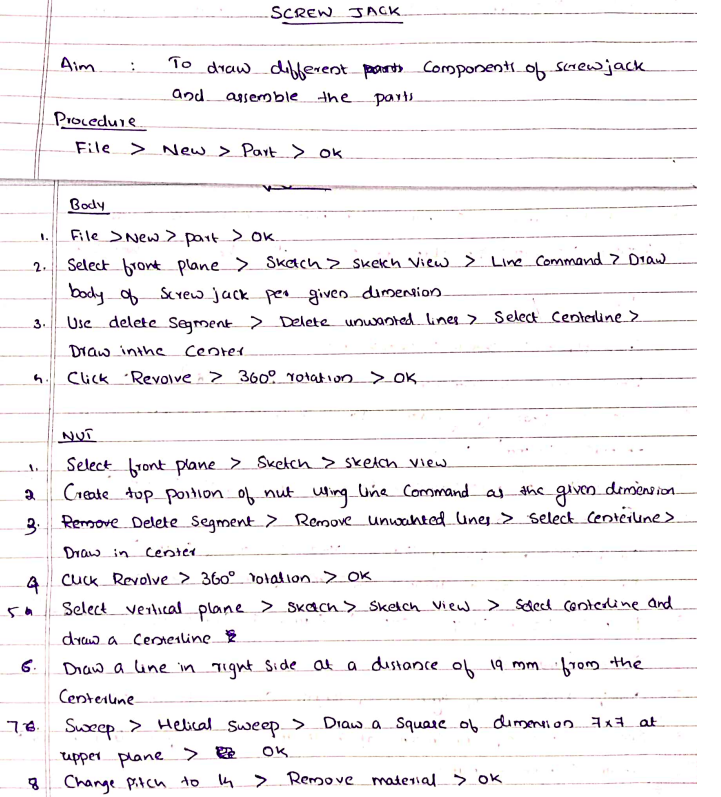 SCREW JACK
Aim : To draw different components of screwjack
and assemble the parts
Procedure
File > New > Part > OK
Body
1. File > New > part > OK
2. Select front plane > Sketch > sketch view > Line command > Draw
body of screw jack per given dimension
3. Use delete segment > Delete unwanted lines > Select Centerline >
Draw inthe center
4. Click Revolve > 360° rotation > OK
NUT
1. Select front plane > Sketch > sketch view
2 Create top portion of nut using line command as the given dimension
3. Delete segment > Remove unwanted lines > select centerline >
Draw in center
4 Click Revolve > 360° rotation > OK
5 Select vertical plane > sketch > sketch view > select centerline and
draw a centerline
6. Draw a line in right side at a distance of 19 mm from the
Centerline
7. Sweep > Helical sweep > Draw a square of dimension 7x7 at
upper plane > OK
8 Change pitch to 14 > Remove material > OK